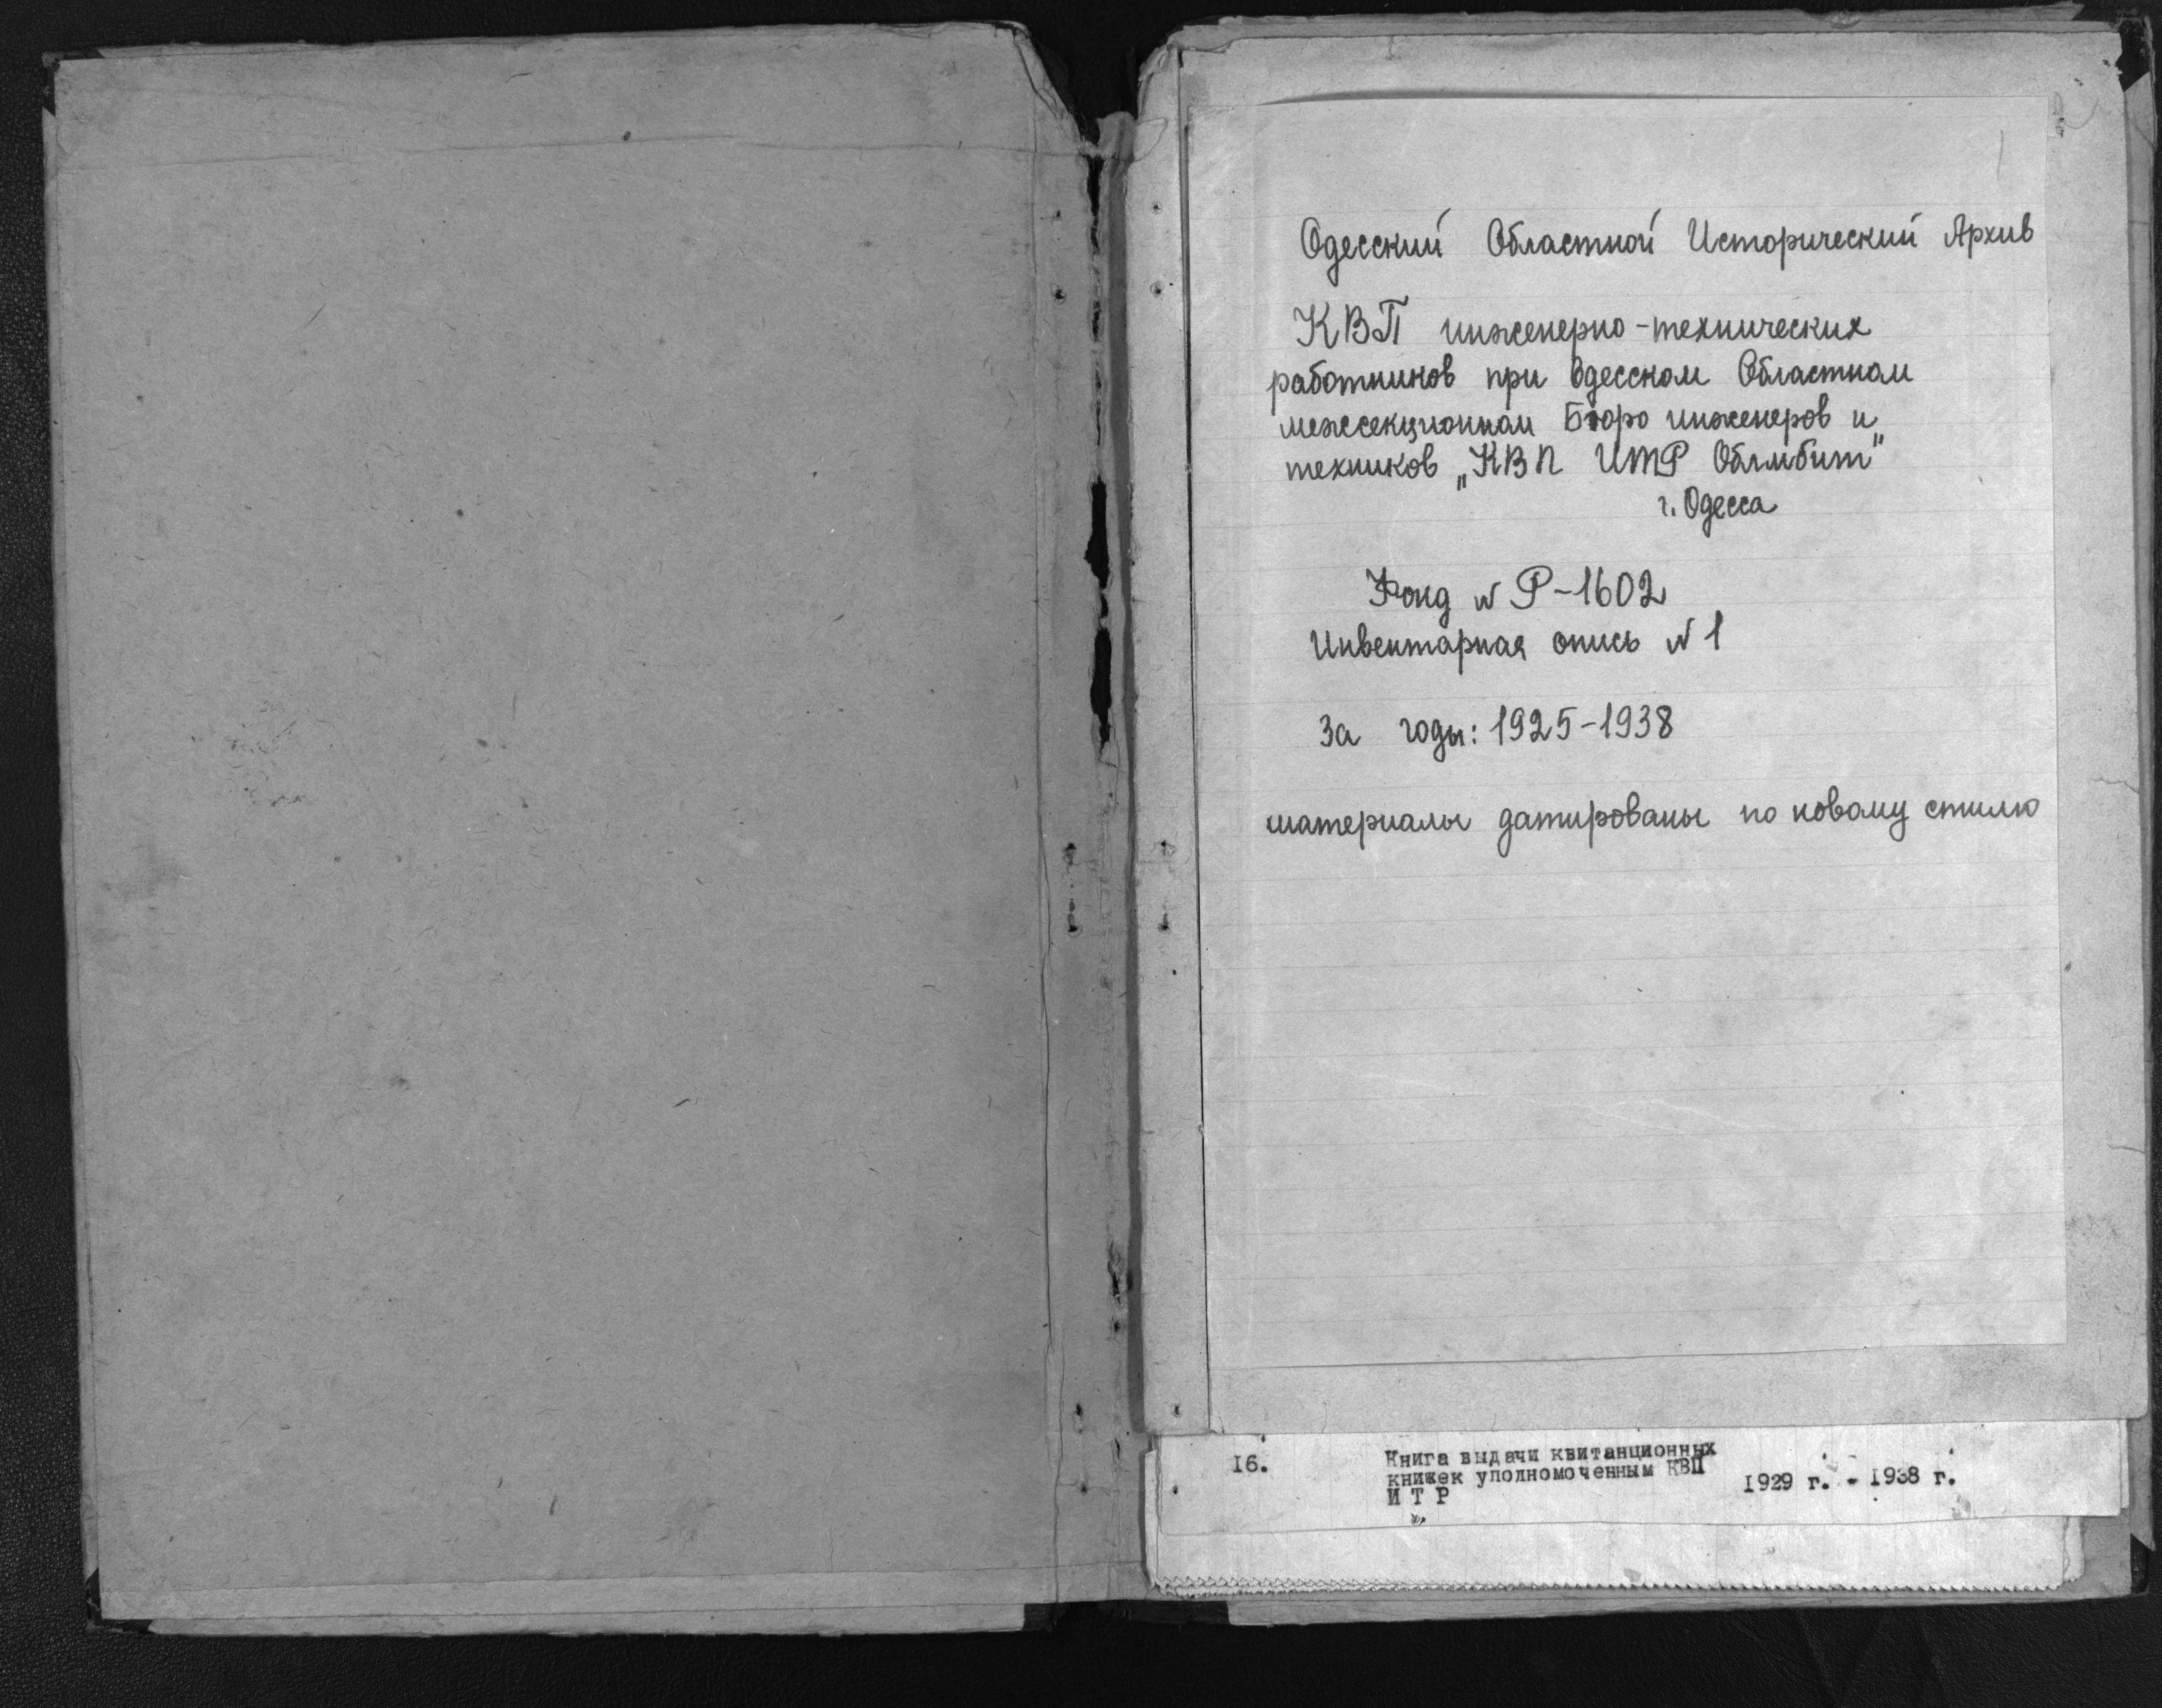 Одесский Областной Исторический Архив
КВП инженерно-технических
работников при Одесском Областном
межсекционном Бюро инженеров и
техников „КВП ИТР Облмбит"
г. Одесса
Фонд № Р-1602
Инвентарная опись № 1
За годы: 1925-1938
материалы датированы по новому стилю
16. Книга выдачи квитанционных
книжек уполномоченным КВП
И Т Р
1929 г. - 1938 г.